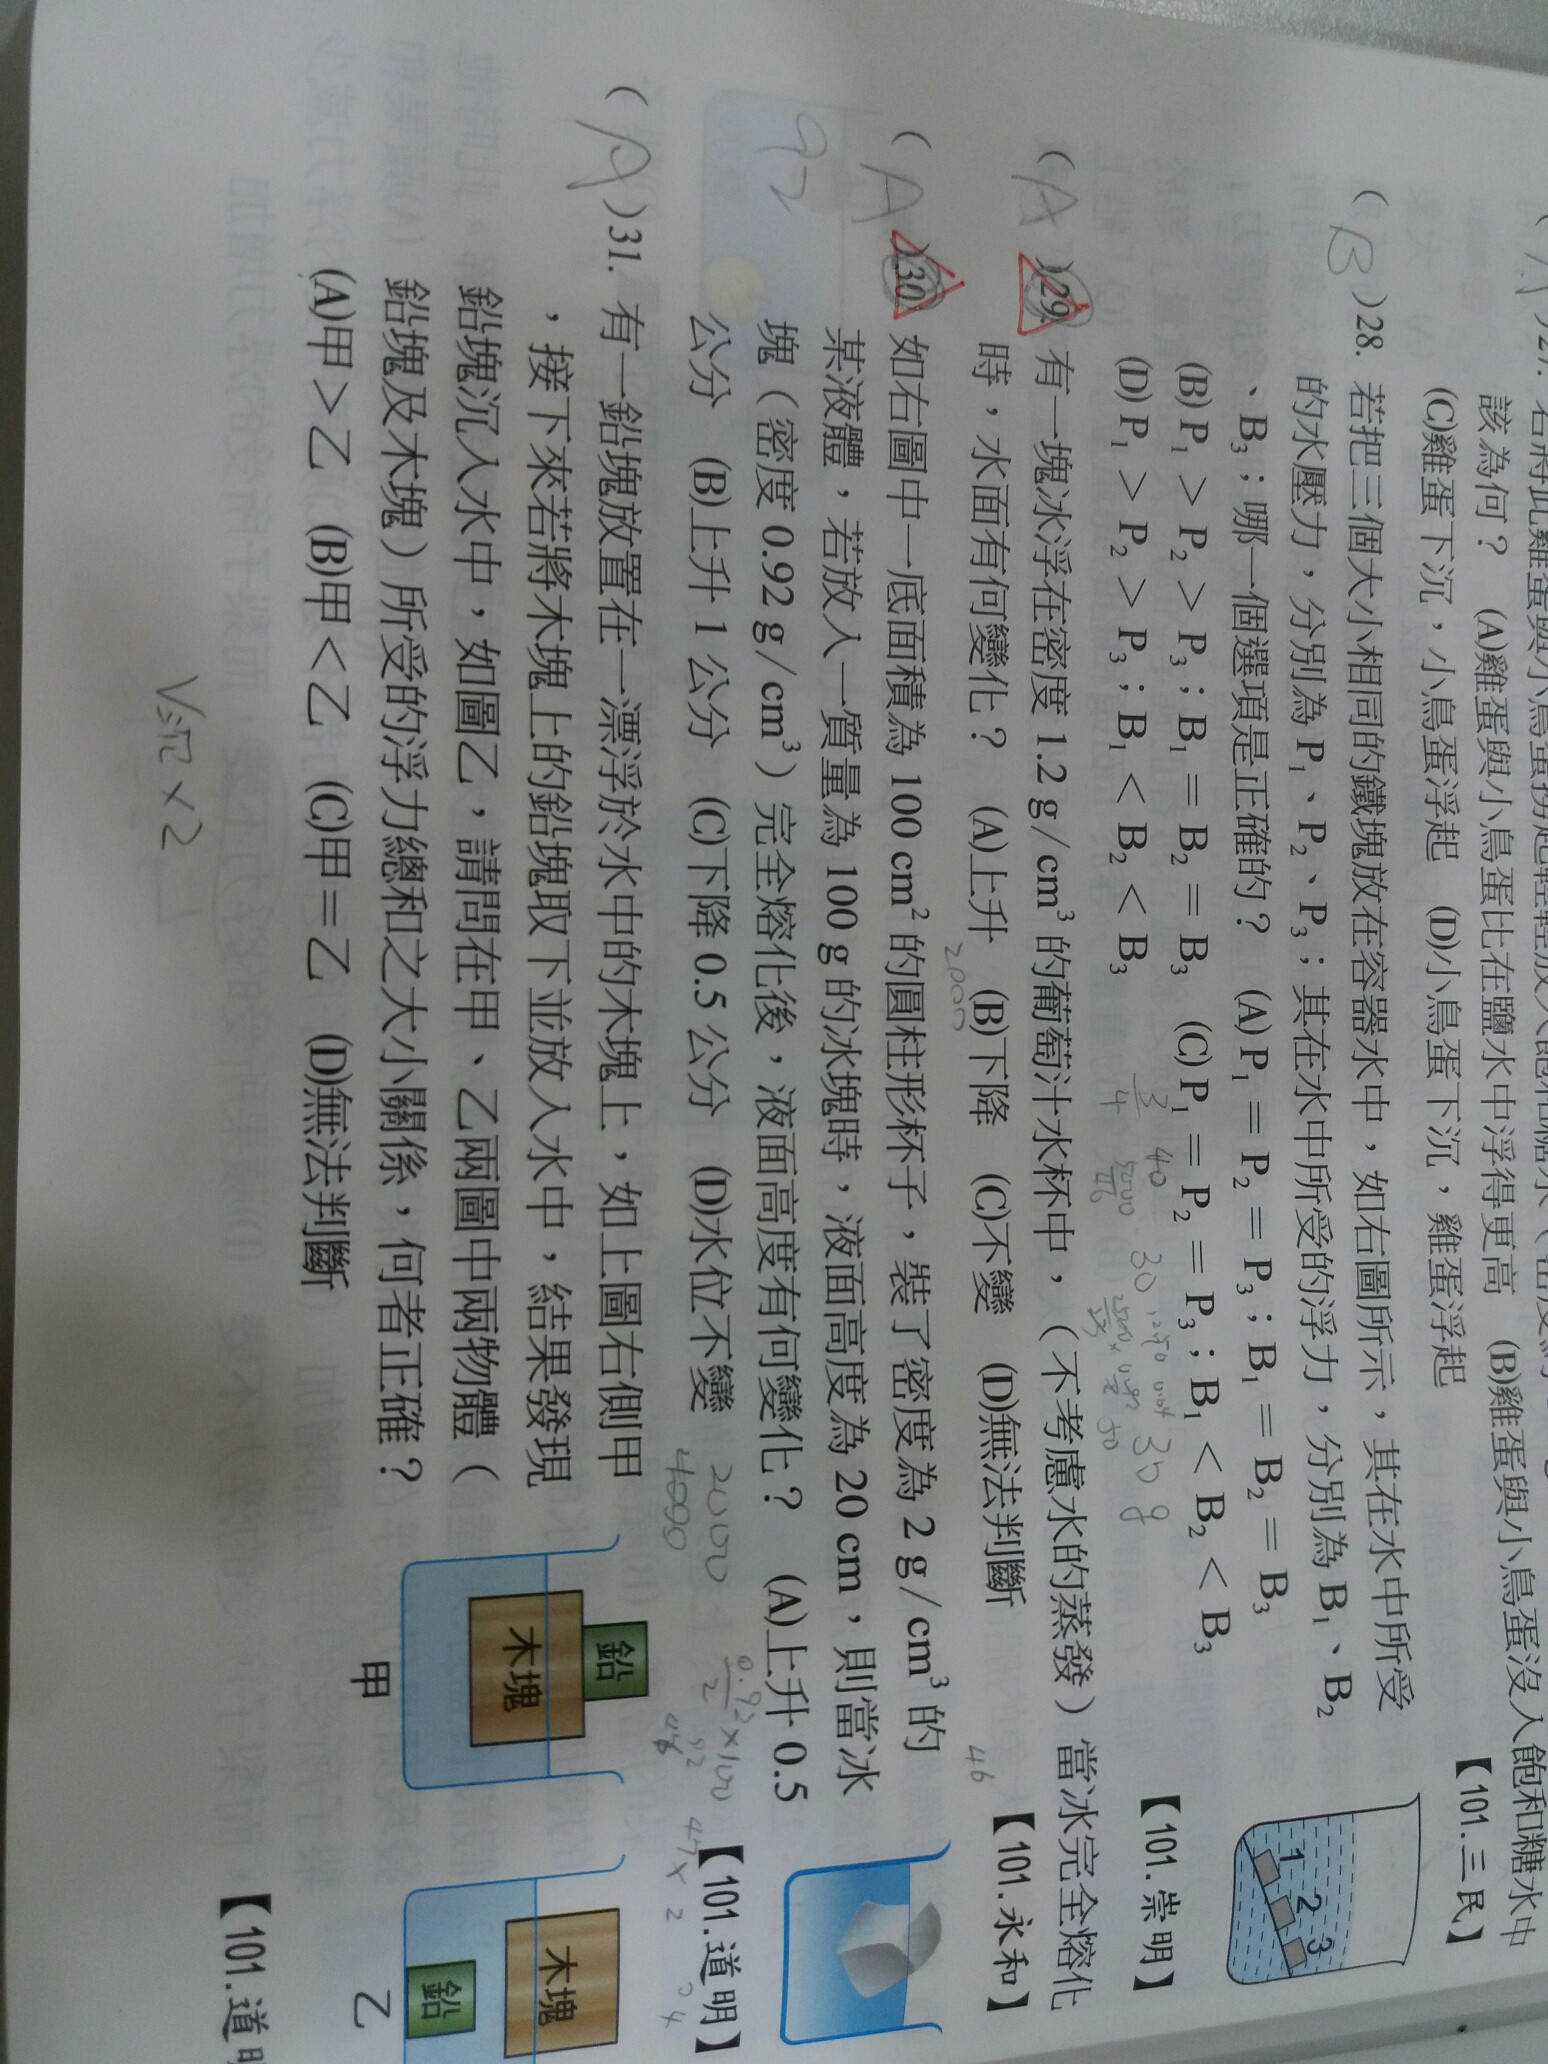 該為何？ (A)雞蛋與小鳥蛋比在鹽水中浮得更高 (B)雞蛋與小鳥蛋沒入飽和糖水中
(C)雞蛋下沉，小鳥蛋浮起 (D)小鳥蛋下沉，雞蛋浮起 【101.三民】
(B)28. 若把三個大小相同的鐵塊放在容器水中，如右圖所示，其在水中所受
的水壓力，分別為 P₁、P₂、P₃；其在水中所受的浮力，分別為 B₁、B₂
、B₃；哪一個選項是正確的？ (A) P₁ = P₂ = P₃；B₁ = B₂ = B₃
(B) P₁ > P₂ > P₃；B₁ = B₂ = B₃ (C) P₁ = P₂ = P₃；B₁ < B₂ < B₃
(D) P₁ > P₂ > P₃；B₁ < B₂ < B₃ 【101.崇明】
1
2
3
(A)29. 有一塊冰浮在密度 1.2 g/cm³ 的葡萄汁水杯中，（不考慮水的蒸發）當冰完全熔化
時，水面有何變化？ (A)上升 (B)下降 (C)不變 (D)無法判斷 【101.永和】
2000
46
(A)30. 如右圖中一底面積為 100 cm² 的圓柱形杯子，裝了密度為 2 g/cm³ 的
某液體，若放入一質量為 100 g 的冰塊時，液面高度為 20 cm，則當冰
塊（密度 0.92 g/cm³）完全熔化後，液面高度有何變化？ (A)上升 0.5
公分 (B)上升 1 公分 (C)下降 0.5 公分 (D)水位不變 【101.道明】
92
2000
(A)31. 有一鉛塊放置在一漂浮於水中的木塊上，如上圖右側甲
，接下來若將木塊上的鉛塊取下並放入水中，結果發現
鉛塊沉入水中，如圖乙，請問在甲、乙兩圖中兩物體（
鉛塊及木塊）所受的浮力總和之大小關係，何者正確？
(A)甲＞乙 (B)甲＜乙 (C)甲＝乙 (D)無法判斷
【101.道
鉛
木塊
甲
木塊
鉛
乙